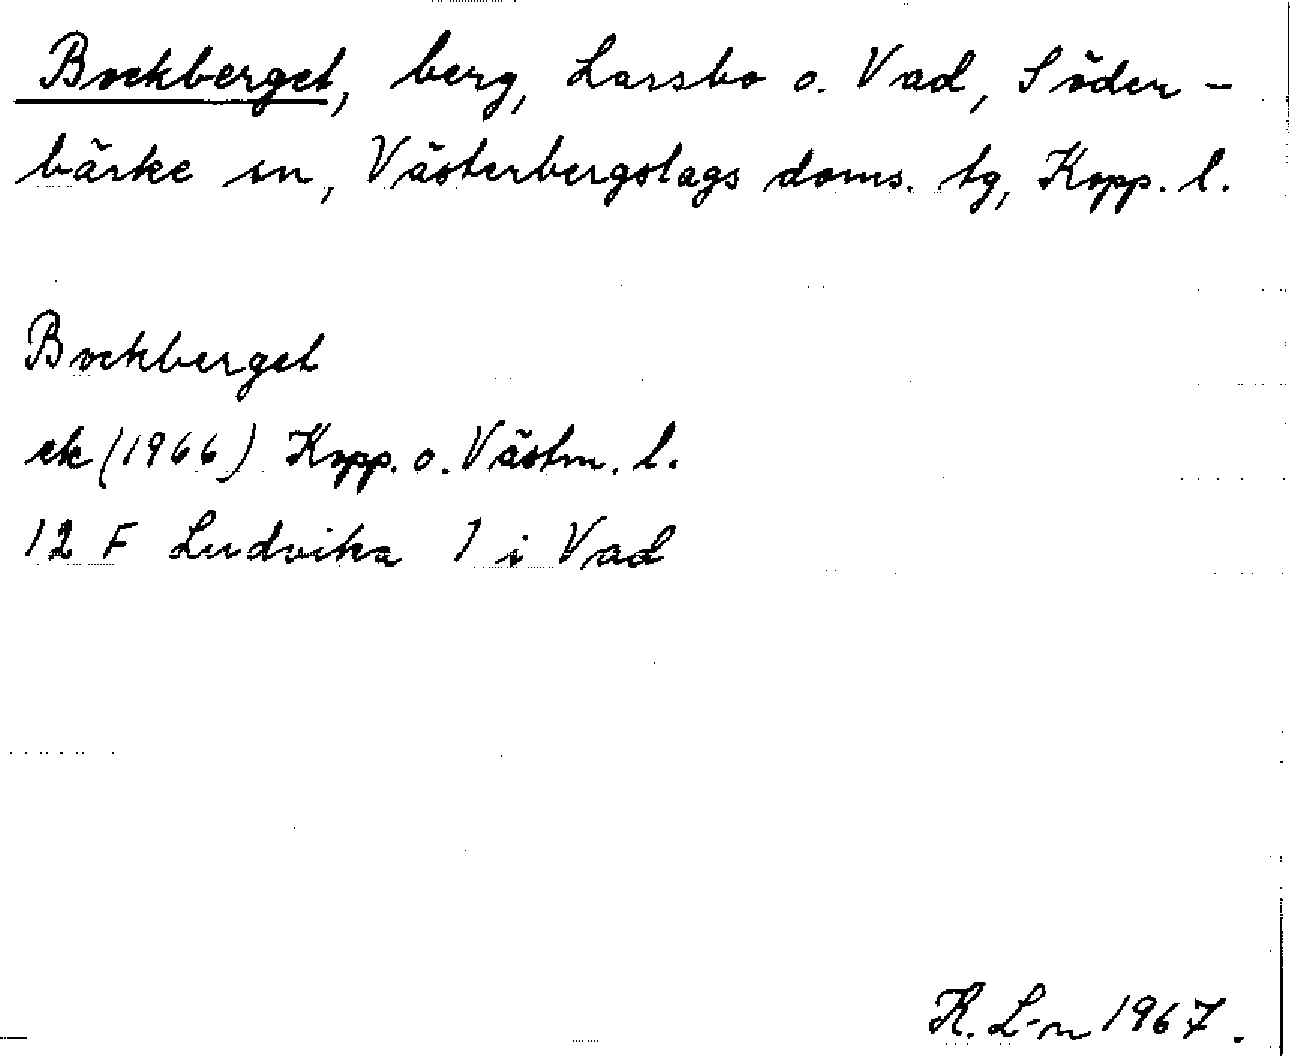 Bockberget, berg, Larsbo o. Vad, Söder-
bärke sn, Västerbergslags doms. tg, Kopp. l.
Bockberget
ek (1966) Kopp. o. Västm. l.
12 F Ludvika 1 i Vad
K. L-n 1967.